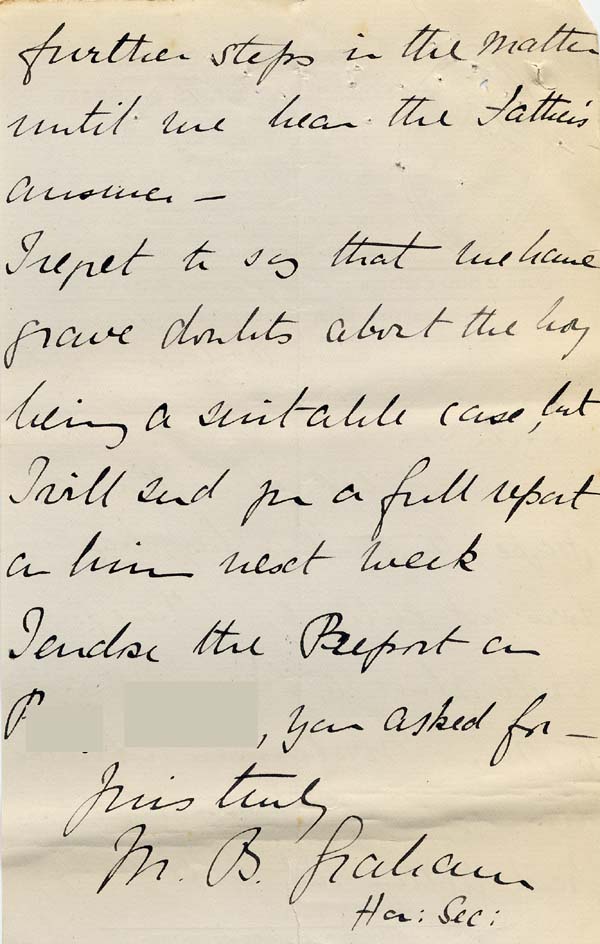 further steps in the matter
until we hear the Father's
answer —
I regret to say that we have
grave doubts about the boy
being a suitable case, but
I will send you a full report
on him next week
I enclose the Report on
P , you asked for —
Yours truly
M. B. Graham
Hon: Sec: